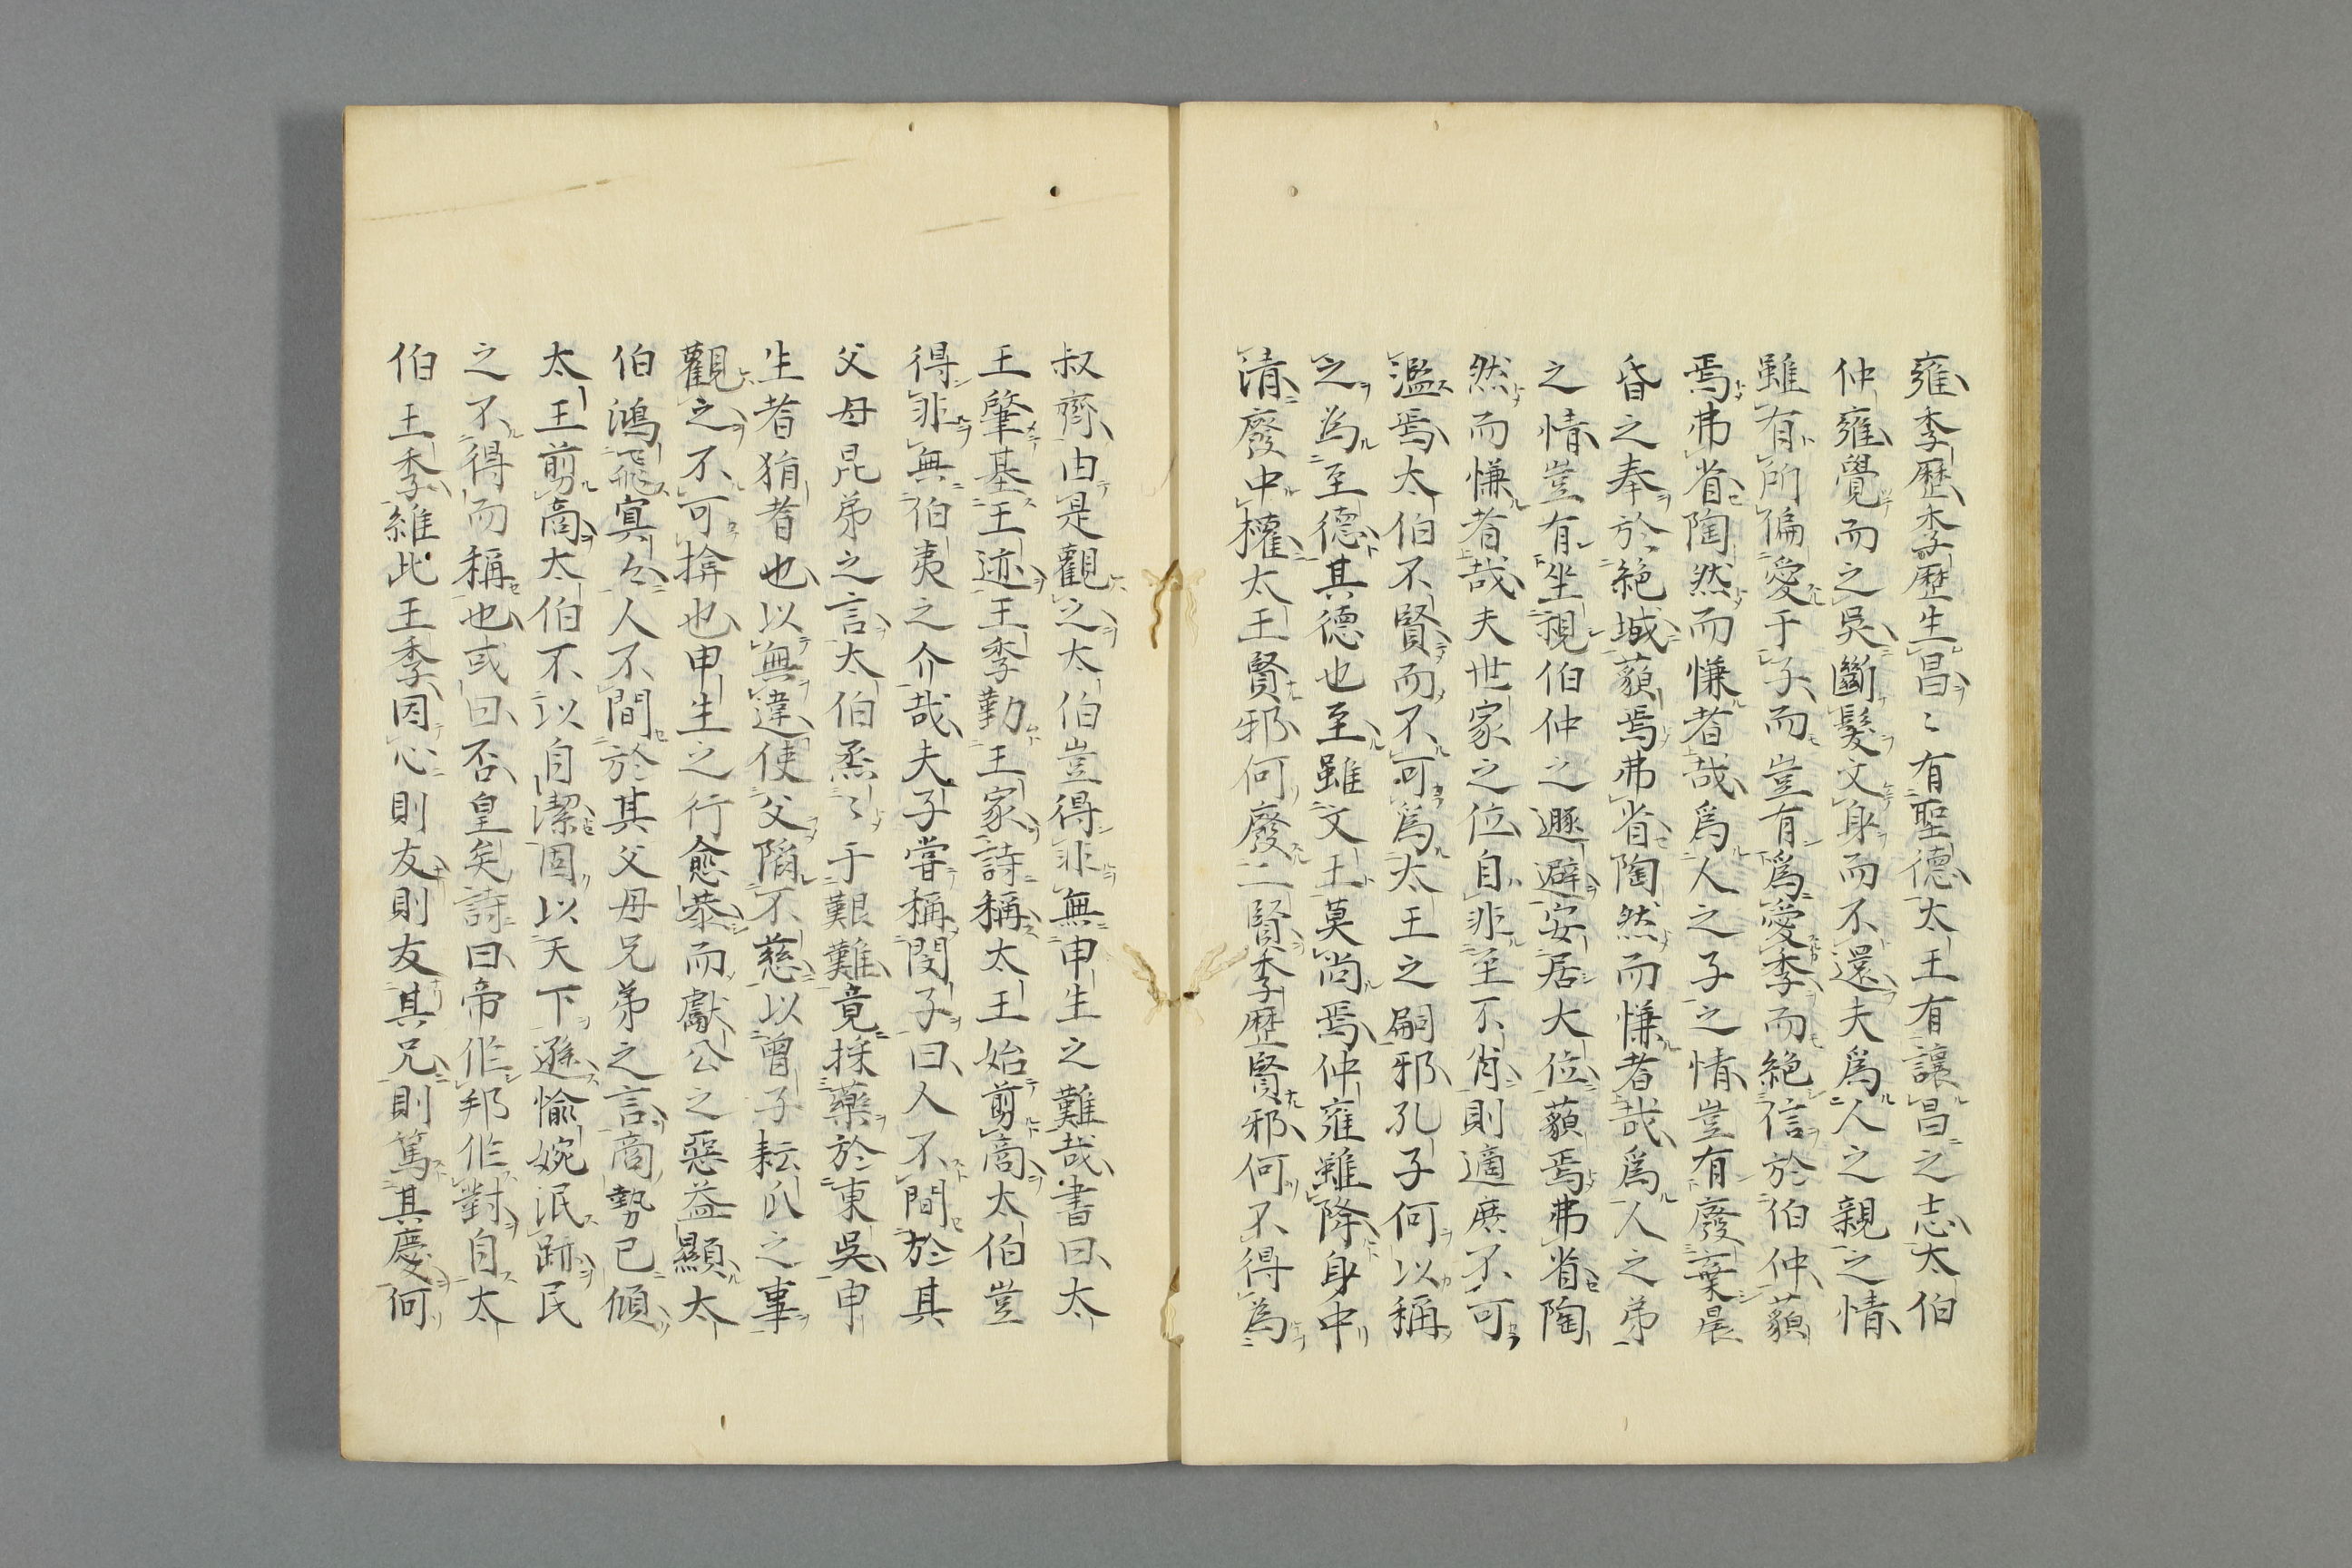 雍季歷季歷生昌〻有聖德太王有讓昌之志太伯
仲雍覺而之吳斷髮文身而不還夫爲人之親之情
雖有所偏愛于子而豈有爲愛季而絶信於伯仲藐
焉弗省陶然而慊者哉爲人之子之情豈有廢棄晨
昏之奉於絶域藐焉弗省陶然而慊者哉爲人之弟
之情豈有坐視伯仲之遯避安居大位藐焉弗省陶
然而慊者哉夫世家之位自非至不肖則適庶不可
濫焉太伯不賢而不可爲太王之嗣邪孔子何以稱
之為至德其德也至雖文王莫尚焉仲雍雖降身中
清廢中權太王賢邪何廢二賢季歷賢邪何不得為
叔齊由是觀之太伯豈得非無申生之難哉書曰太
王肇基王迹王季勤王家詩稱太王始剪商太伯豈
得非無伯夷之介哉夫子嘗稱閔子曰人不間於其
父母昆弟之言太伯烝〻于艱難竟採藥於東吳申
生者狷者也以無違使父陷不慈以曾子耘瓜之事
觀之不可揜也申生之行愈恭而獻公之惡益顯太
伯鴻飛冥〻人不間於其父母兄弟之言商勢已傾
太王剪商太伯不以自潔固以天下遜愉婉泯跡民
之不得而稱也或曰否皇矣詩曰帝作邦作對自太
伯王季維此王季因心則友則友其兄則篤其慶何